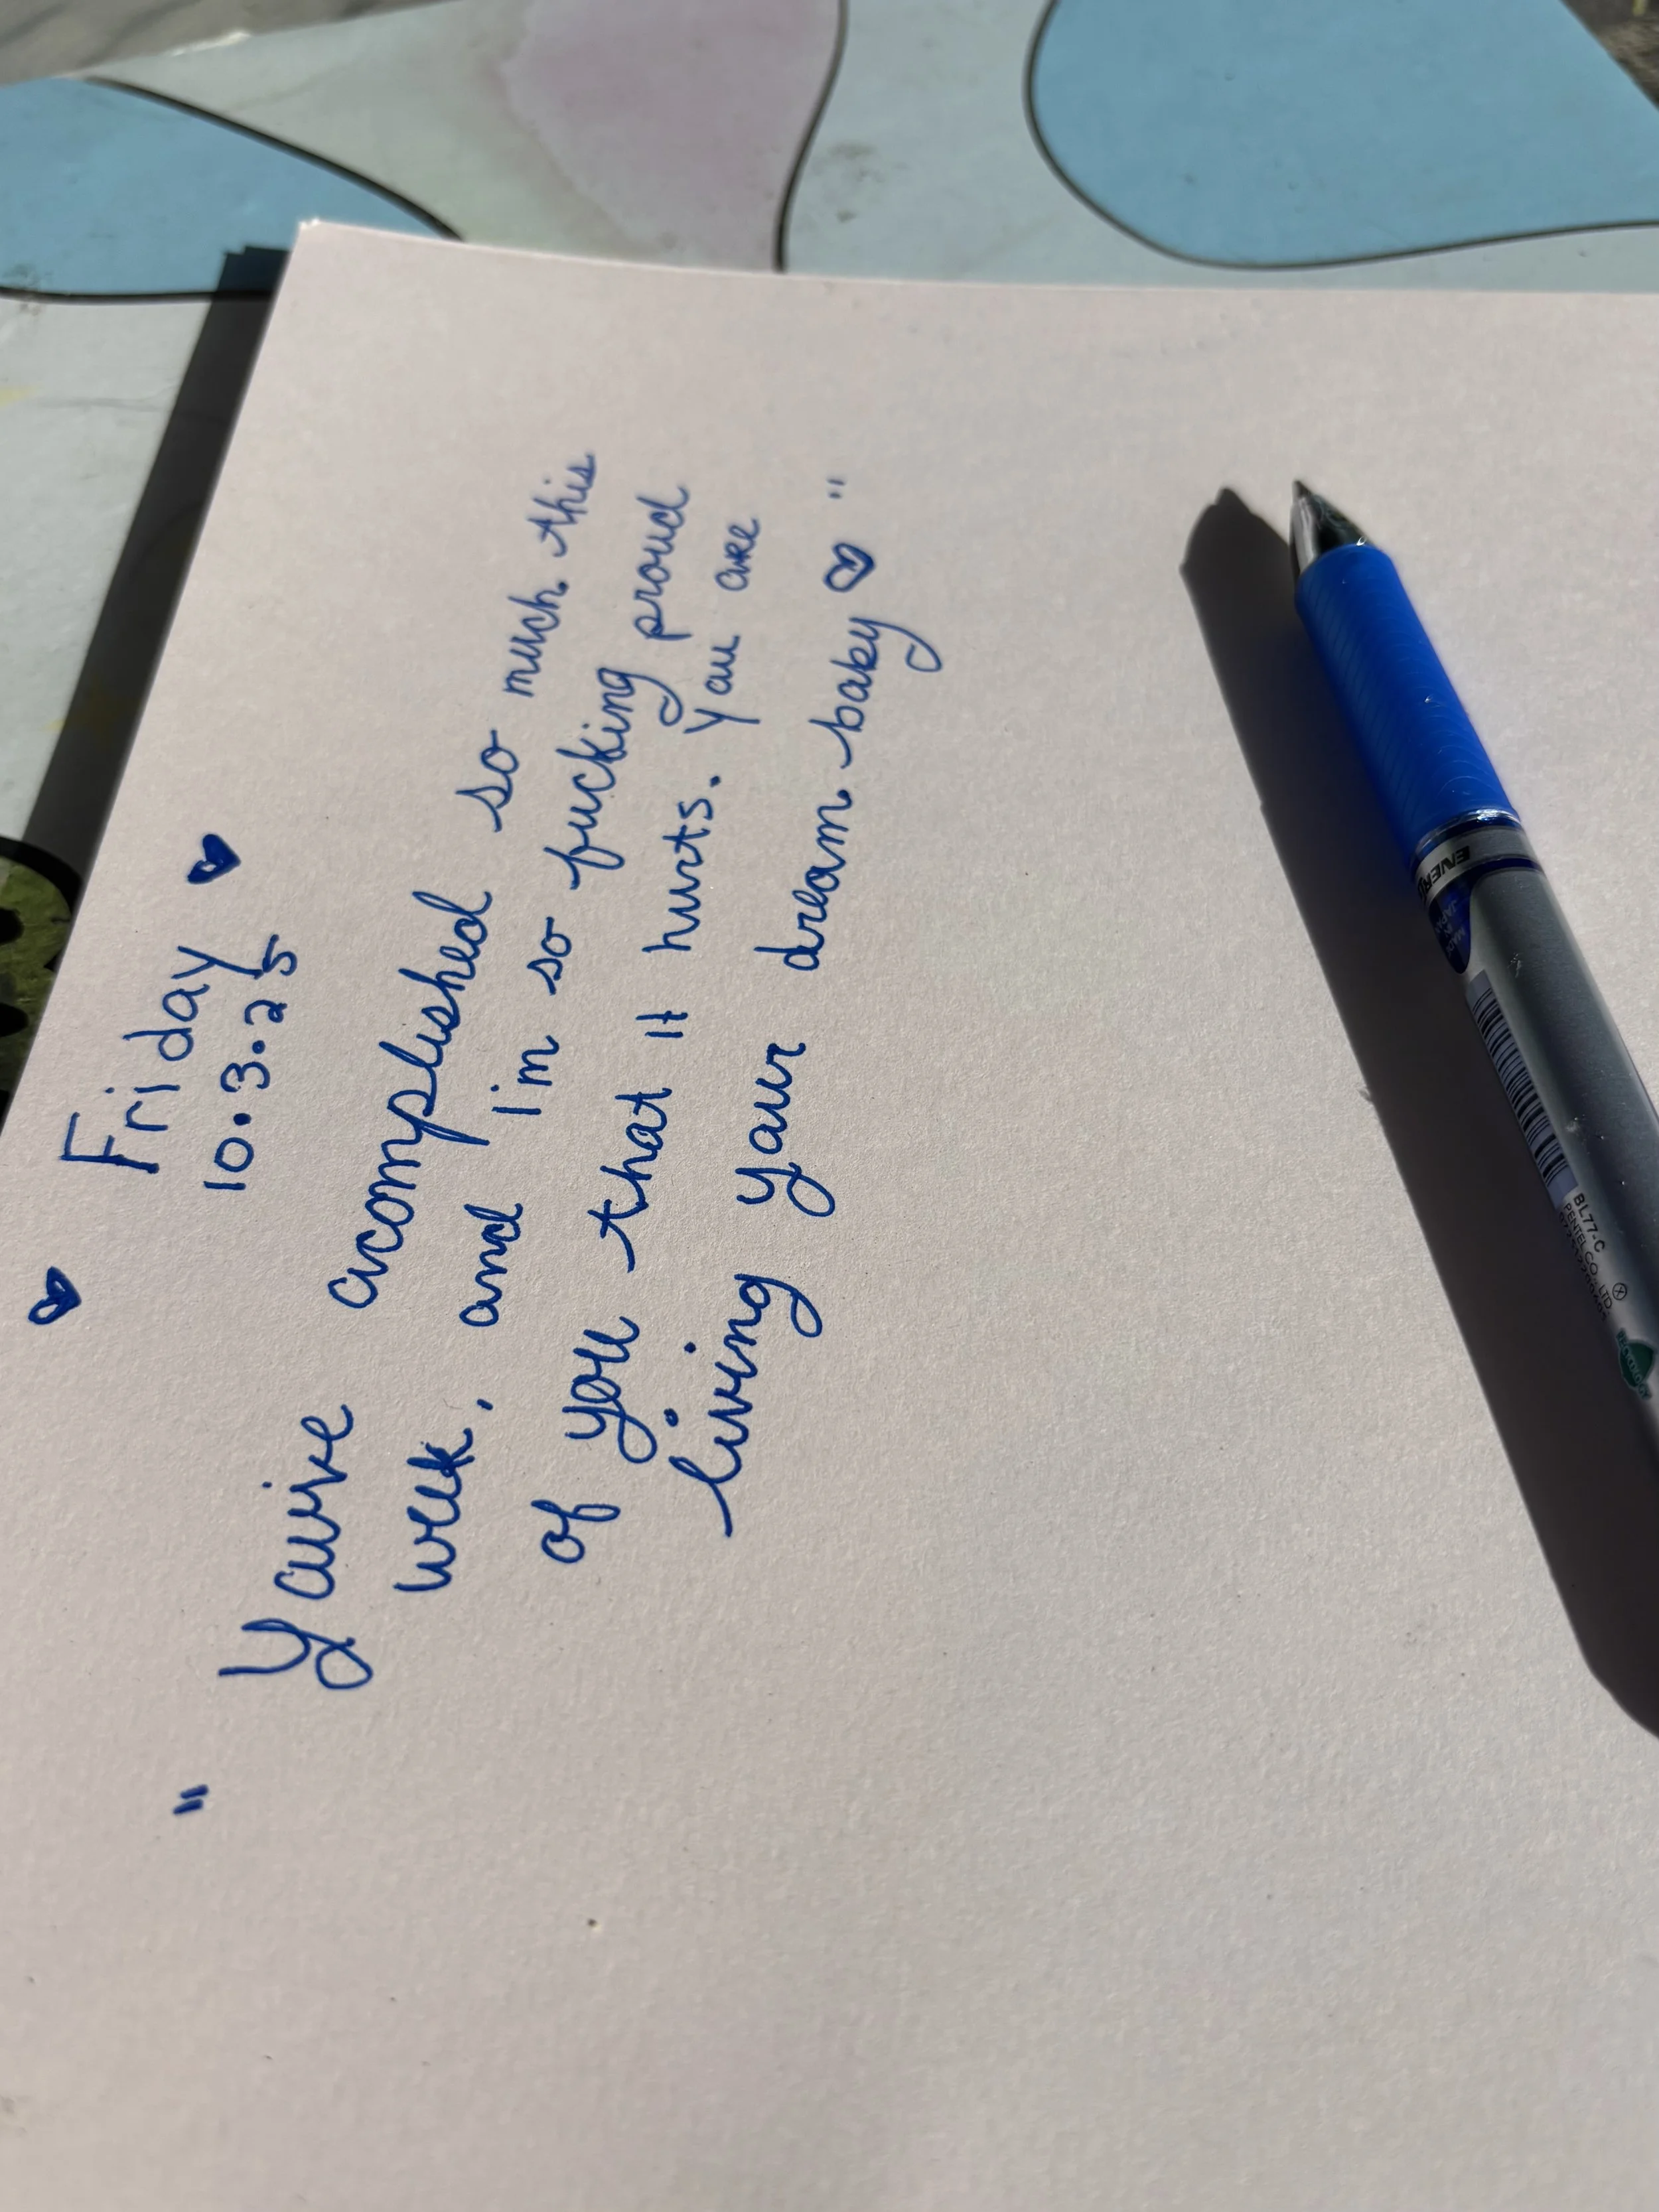 ♥ Friday ♥
10.3.25
" You've accomplished so much this
week, and I'm so fucking proud
of you that it hurts. You are
living your dream baby ♥ "
ENER
MADE IN
JAPAN
BL77-C
PENTEL CO., LTD.